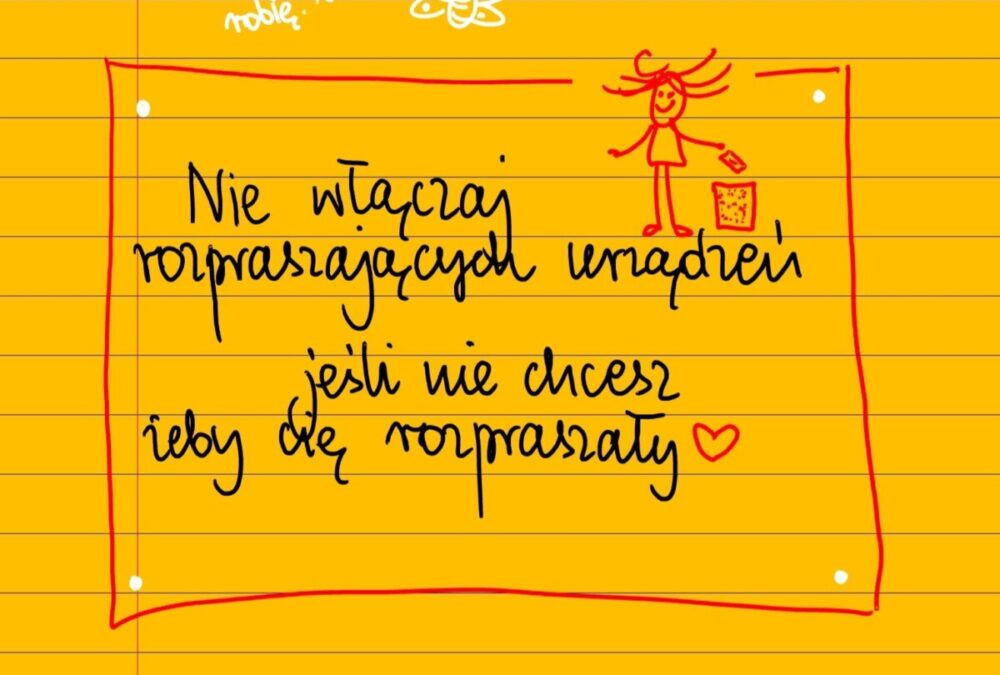 robię.
Nie włączaj
rozpraszających urządzeń
jeśli nie chcesz
żeby cię rozpraszały ♡